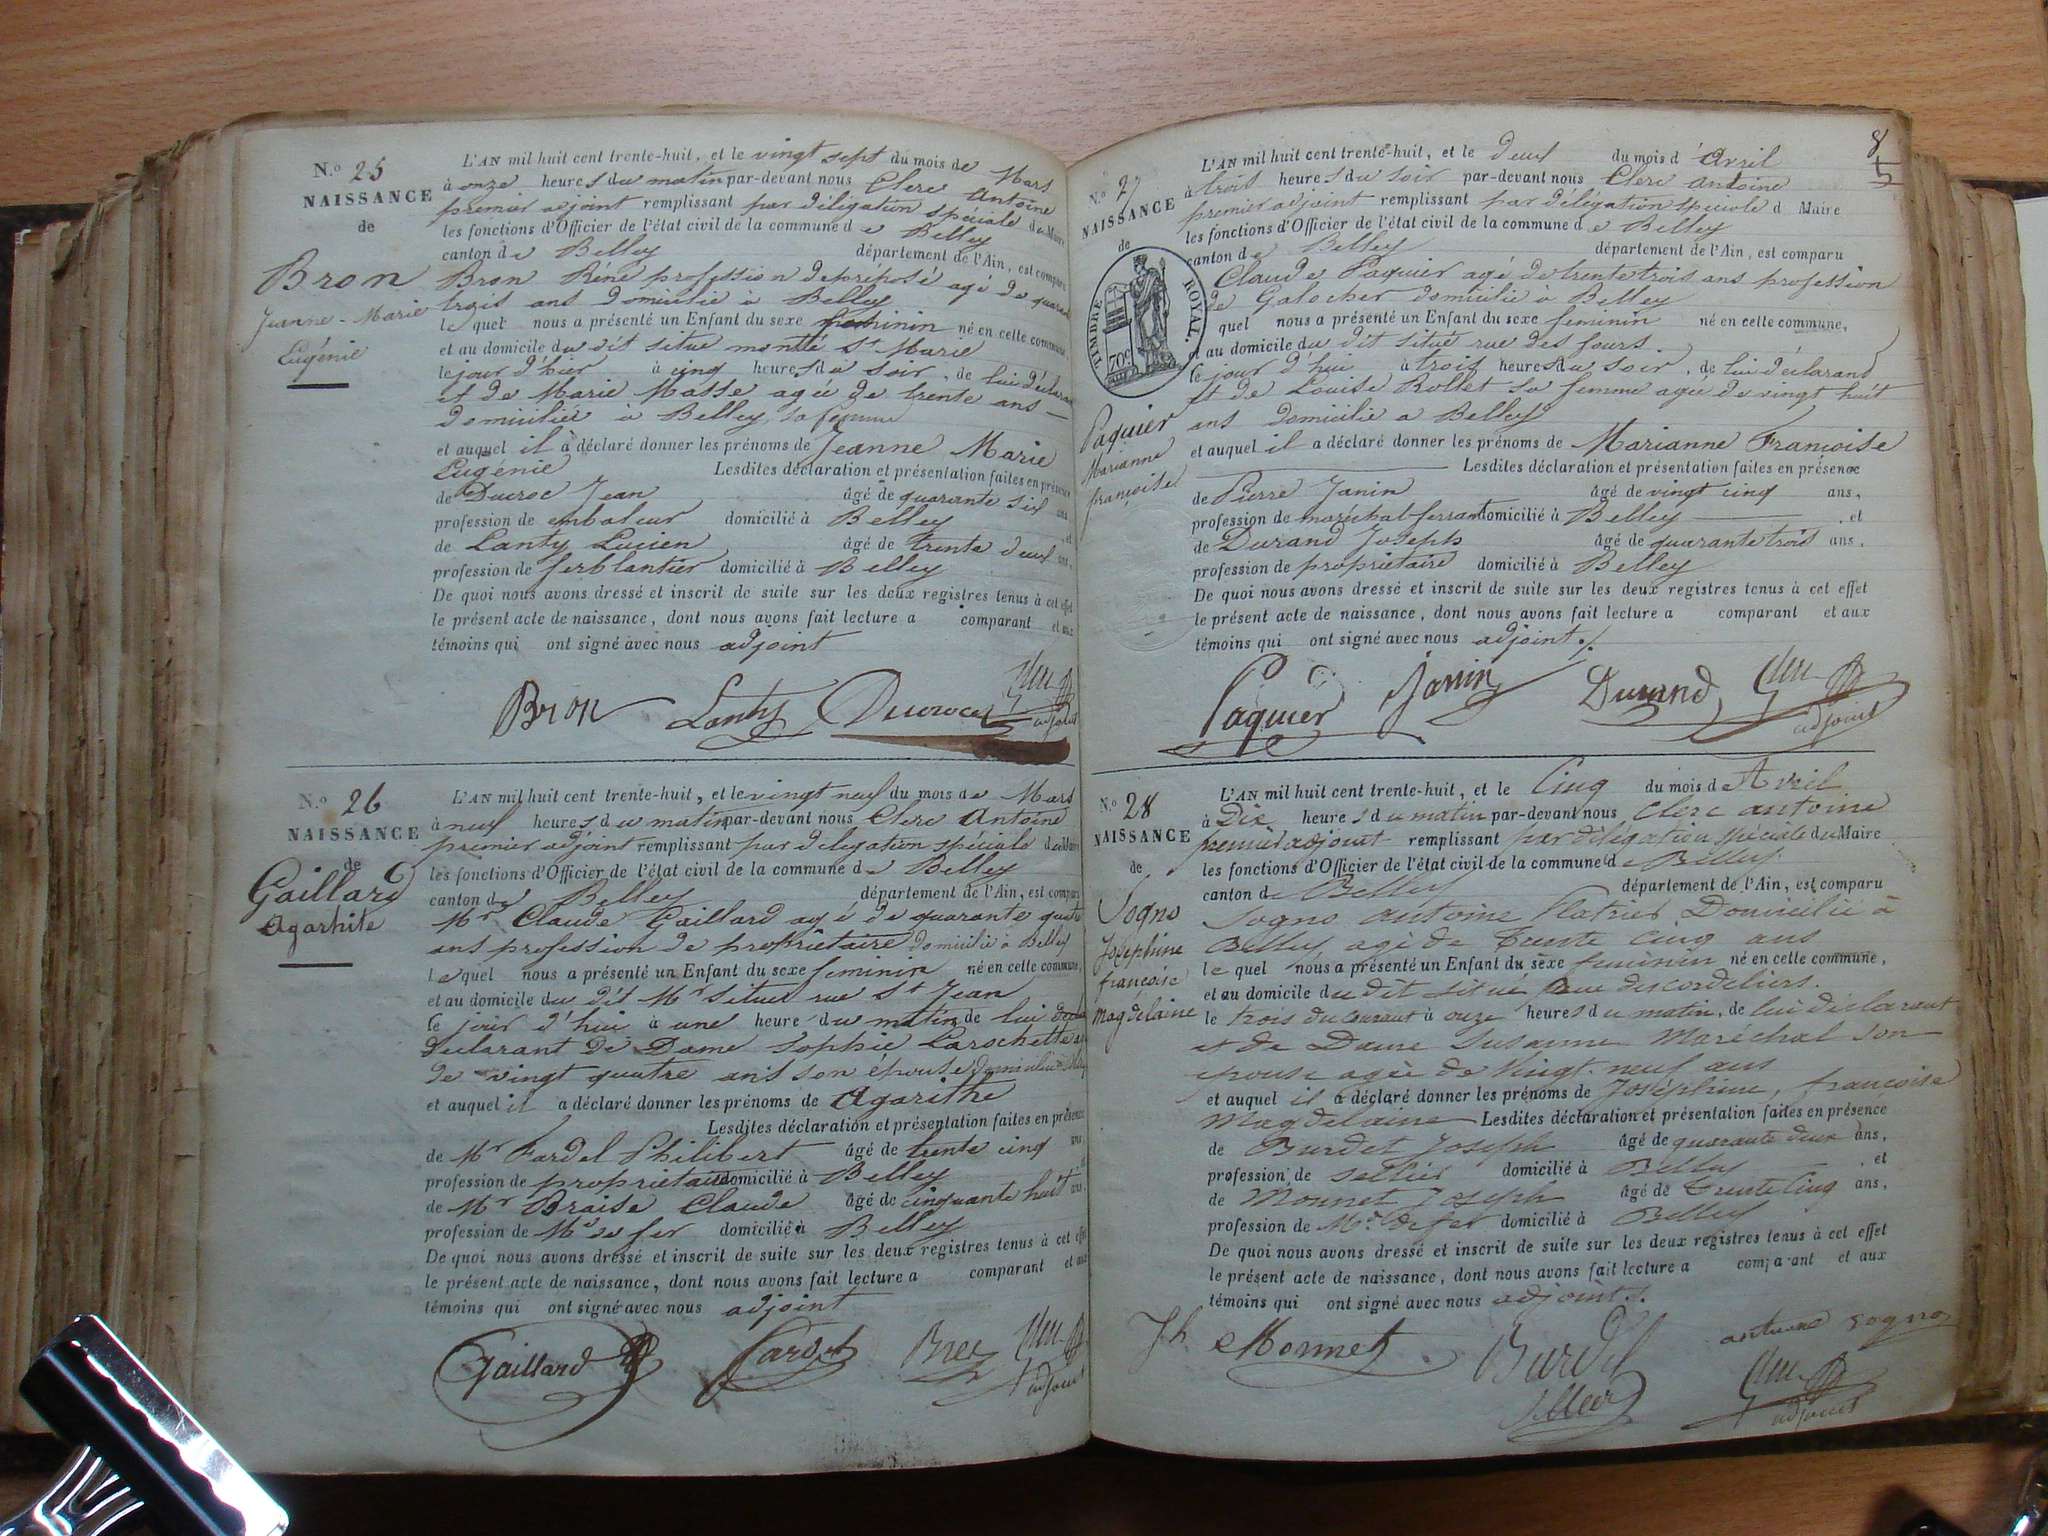 N.o 25
NAISSANCE
de
Bron
Jeanne-Marie
Eugénie
L'AN mil huit cent trente-huit, et le vingt sept du mois de Mars
à onze heures du matin par-devant nous Clerc Antoine
premier adjoint remplissant par déligation spéciale du Maire
les fonctions d'Officier de l'état civil de la commune de Belley
canton de Belley département de l'Ain, est comparu
Bron Réné profession de préposé agé de quarante
trois ans domicilié à Belley
le quel nous a présenté un Enfant du sexe feminin né en cette commune,
et au domicile du dit situé montée St Marie
le jour d'hier à cinq heures du soir, de lui déclarant
et de Marie Masse agée de trente ans
domiciliée à Belley, sa femme
et auquel il a déclaré donner les prénoms de Jeanne Marie
Eugénie Lesdites déclaration et présentation faites en présence
de Ducroc Jean âgé de quarante six ans
profession de embaleur domicilié à Belley et
de Lanty Lucien âgé de trente deux ans,
profession de ferblantier domicilié à Belley
De quoi nous avons dressé et inscrit de suite sur les deux registres tenus à cet effet
le présent acte de naissance, dont nous avons fait lecture a comparant et aux
témoins qui ont signé avec nous adjoint
Bron Lanty Ducroc
adjoint
N.o 26
NAISSANCE
de
Gaillard
Agarhite
L'AN mil huit cent trente-huit, et le vingt neuf du mois de Mars
à neuf heures du matin par-devant nous Clerc Antoine
premier adjoint remplissant par délégation spéciale du Maire
les fonctions d'Officier de l'état civil de la commune de Belley
canton de Belley département de l'Ain, est comparu
Mr Claude Gaillard agé de quarante quatre
ans profession de propriétaire domicilié à Belley
le quel nous a présenté un Enfant du sexe feminin né en cette commune,
et au domicile du dit Mr situer rue St Jean
le jour d'hui à une heure du matin, de lui
declarant de Dame Sophie Larochette
de vingt quatre ans son épouse domiciliée
et auquel il a déclaré donner les prénoms de Agarithe
Lesdites déclaration et présentation faites en présence
de Mr Fardel Philibert âgé de trente cinq ans
profession de propriétaire domicilié à Belley
de Mr Braise Claude âgé de cinquante huit ans,
profession de Md de fer domicilié à Belley
De quoi nous avons dressé et inscrit de suite sur les deux registres tenus à cet effet
le présent acte de naissance, dont nous avons fait lecture a comparant et aux
témoins qui ont signé avec nous adjoint
Gaillard Fardel
adjoint
8
5
N.o 27
NAISSANCE
de
TIMBRE ROYAL.
70c
Paquier
Marianne
françoise
L'AN mil huit cent trente-huit, et le deux du mois d'Avril
à trois heures du soir par-devant nous Clerc Antoine
premier adjoint remplissant par délégation spéciale d Maire
les fonctions d'Officier de l'état civil de la commune de Belley
canton de Belley département de l'Ain, est comparu
Claude Paquier agé de trente trois ans profession
de Galocher domicilié à Belley
quel nous a présenté un Enfant du sexe feminin né en cette commune,
et au domicile du dit situé rue des fours
le jour d'hui à trois heures du soir, de lui déclarant
et de Louise Rollet sa femme agée de vingt huit
ans domicilié a Belley
et auquel il a déclaré donner les prénoms de Marianne Françoise
Lesdites déclaration et présentation faites en présence
de Pierre Janin âgé de vingt cinq ans,
profession de maréchal ferrant domicilié à Belley, et
de Durand Joseph âgé de quarante trois ans,
profession de propriétaire domicilié à Belley
De quoi nous avons dressé et inscrit de suite sur les deux registres tenus à cet effet
le présent acte de naissance, dont nous avons fait lecture a comparant et aux
témoins qui ont signé avec nous adjoint ./.
Paquier Janin Durand
adjoint
N.o 28
NAISSANCE
de
Sogno
Joséphine
françoise
Magdelaine
L'AN mil huit cent trente-huit, et le Cinq du mois de Avril
à Dix heures du matin par-devant nous Clerc antoine
premier adjoint remplissant par délégation spéciale du Maire
les fonctions d'Officier de l'état civil de la commune de Belley
canton de Belley département de l'Ain, est comparu
Sogno antoine Platrier Domicilié à
Belley agé de Trente cinq ans
le quel nous a présenté un Enfant du sexe feminin né en cette commune,
et au domicile du dit situé Rue des cordeliers.
le trois du courant à onze heures du matin, de lui declarant
et de Dame Susanne Maréchal son
epouse agée de Vingt-neuf ans
et auquel il a déclaré donner les prénoms de Joséphine, françoise
Magdelaine Lesdites déclaration et présentation faites en présence
de Burdet Joseph âgé de quarante deux ans,
profession de sellier domicilié à Belley, et
de Monnet Joseph âgé de Trente Cinq ans,
profession de Md de fer domicilié à Belley
De quoi nous avons dressé et inscrit de suite sur les deux registres tenus à cet effet
le présent acte de naissance, dont nous avons fait lecture a comparant et aux
témoins qui ont signé avec nous adjoint ./.
Jh Monnet Burdet antoine sogno
sellier
adjoint